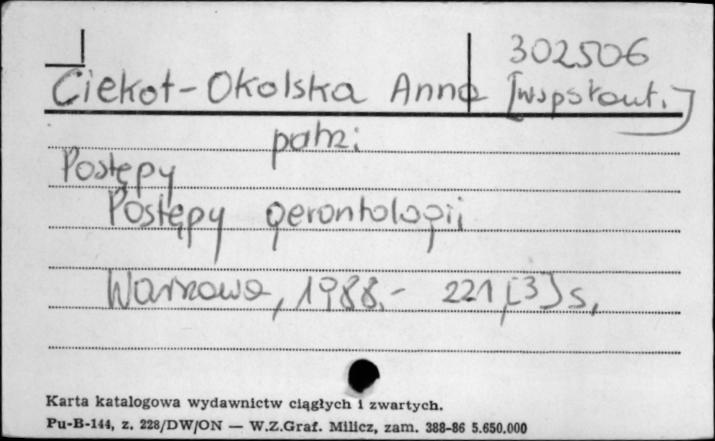 302506
Ciekot-Okolska Anna [współaut.]
patrz:
Postępy
Postępy gerontologii
Warszawa, 1988.- 221,[3]s,
Karta katalogowa wydawnictw ciągłych i zwartych.
Pu-B-144, z. 228/DW/ON — W.Z.Graf. Milicz, zam. 388-86 5.650.000